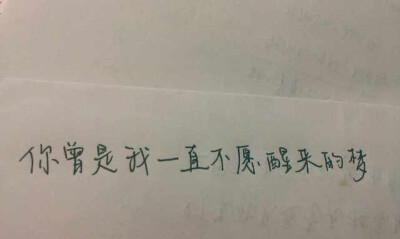 你曾是我一直不愿醒来的梦